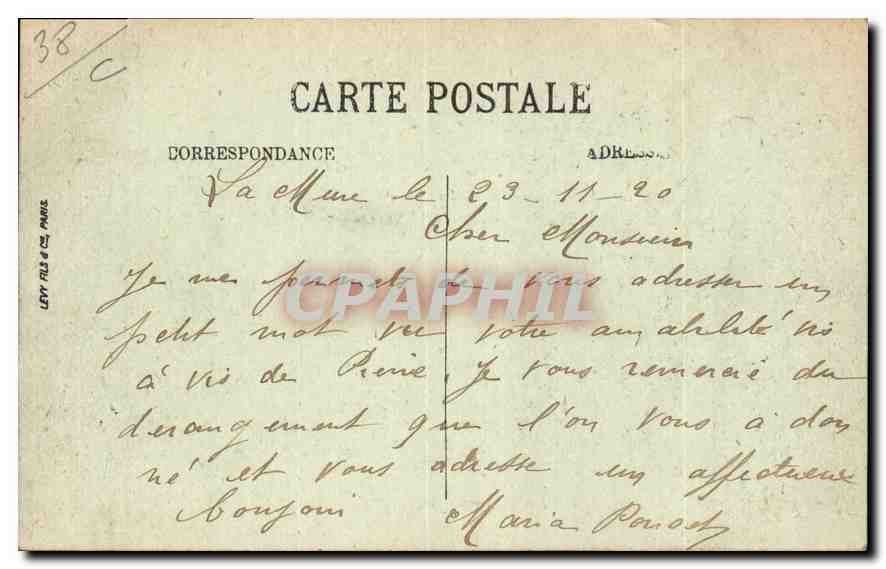 38/C
CARTE POSTALE
CORRESPONDANCE
ADRESSE
LEVY FILS & Cie, PARIS.
La Mure le 23-11-20
Cher Monsieur
Je me permets de vous adresser un
petit mot vu votre amabilité vis
à vis de Pierre. Je vous remercie du
derangement que l'on vous à don
né et vous adresse un affectueux
bonjour Maria
CPAPHIL